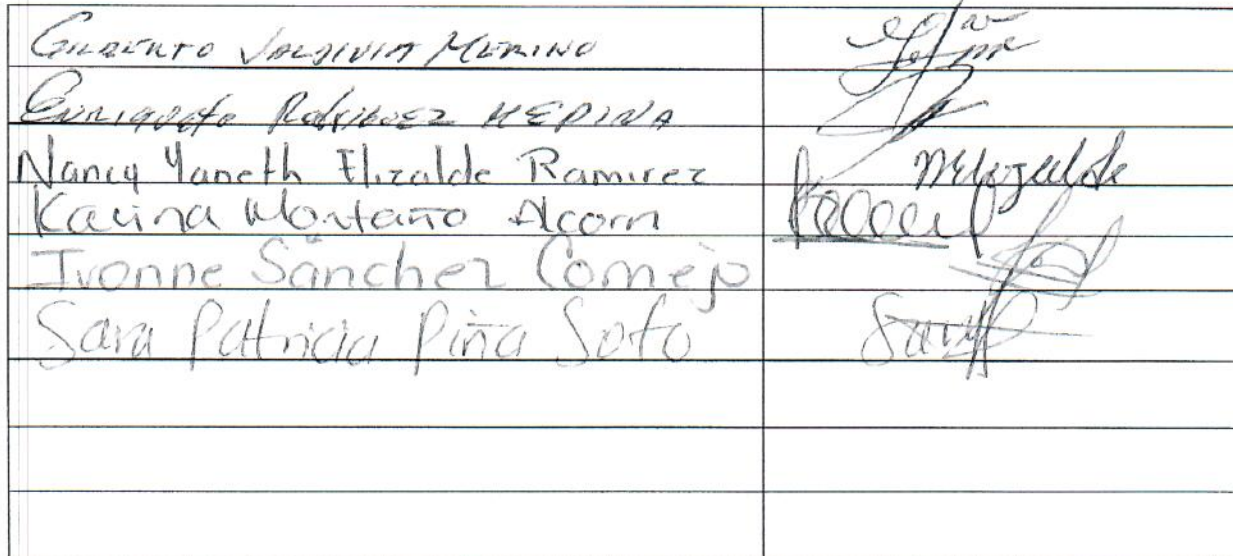 Gilberto Valdivia Merino
Enriqueta Rodriguez MEDINA
Nancy Yaneth Elizalde Ramirez
Karina Montaño Alcorn
Ivonne Sánchez Cornejo
Sara Patricia Piña Soto